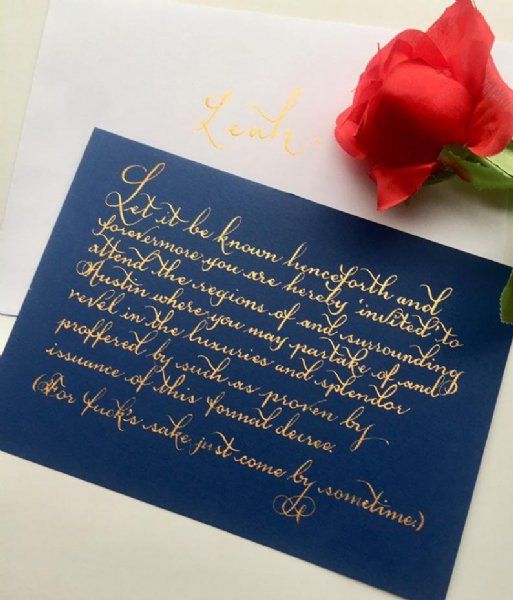 Leah
Let it be known henceforth and
forevermore you are hereby 'invited' to
attend the regions of and surrounding
Austin where you may partake of and
revel in the luxuries and splendor
proffered by such as proven by
issuance of this formal decree.
(For fuck's sake just come by sometime.)